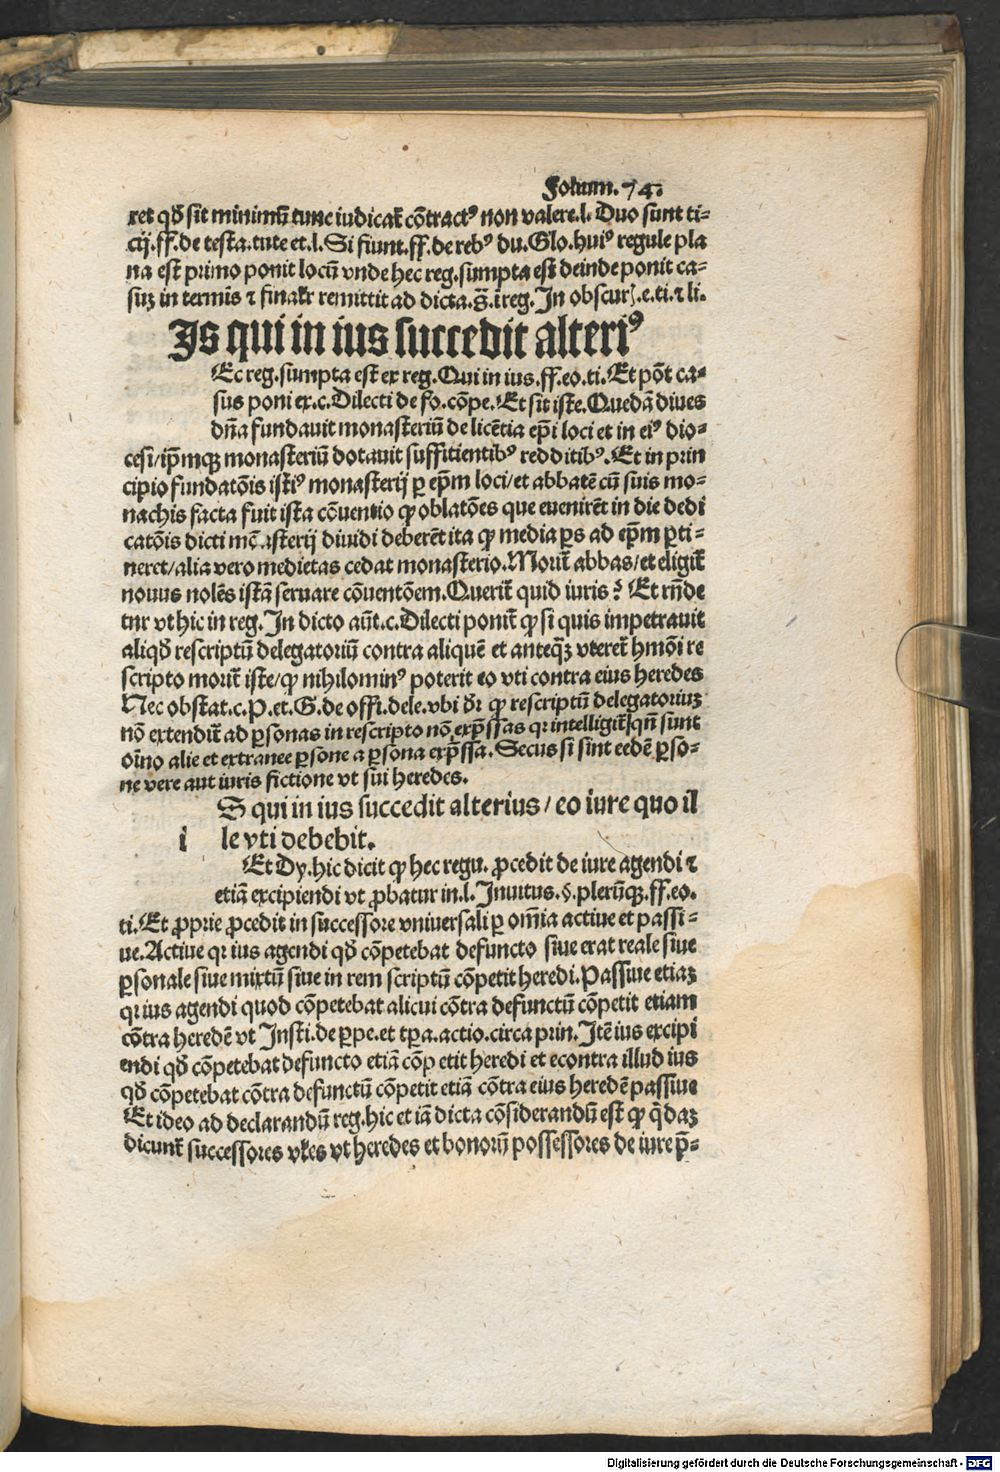 Folium.74.
ret qđ sit minimū tunc iudicat̄ cōtractꝰ non valere.l. Duo sunt ti-
cij.ff.de testa.tute et.l. Si fiunt.ff.de rebꝰ du. Glo.huiꝰ regule pla
na est primo ponit locū vnde hec reg.sumpta est deinde ponit ca-
suꝫ in termīs ⁊ finalr̄ remittit ad dicta.s̄.ī reg. In obscur.e.ti.⁊ li.
Is qui in ius succedit alteriꝰ
Ec reg.sumpta est ex reg. Qui in ius.ff.eo.ti. Et pōt ca-
sus poni ex.c. Dilecti de fo.cōpe. Et sit iste. Quedā diues
dn̄a fundauit monasteriū de licētia ep̄i loci et in eiꝰ dio-
cesi/ip̄mqꝫ monasteriū dotauit suffitientibꝰ redditibꝰ. Et in prin
cipio fundatōis istiꝰ monasterij ꝑ ep̄m loci/et abbatē cū suis mo-
nachis facta fuit ista cōuentio ꝙ oblatōes que euenirēt in die dedi
catōis dicti mōasterij diuidi deberēt ita ꝙ media ꝑs ad ep̄m ꝑti-
neret/alia vero medietas cedat monasterio. Morit̄ abbas/et eligit̄
nouus nolēs istā seruare cōuentōem. Querit̄ quid iuris? Et rn̄de
tur vt hic in reg. In dicto aūt.c. Dilecti ponit̄ ꝙ si quis impetrauit
aliqđ rescriptū delegatoriū contra aliquē et anteqꝫ vteret̄ hmōi re
scripto morit̄ iste/ꝙ nihilominꝰ poterit eo vti contra eius heredes
Nec obstat.c. P. et. G. de offi.dele.vbi dr̄ ꝙ rescriptū delegatoriuꝫ
nō extendit̄ ad ꝑsonas in rescripto nō exp̄ssas qr intelligit̄ qn̄ sunt
oīno alie et extranee ꝑsone a ꝑsona exp̄ssa. Secus si sint eedē ꝑso-
ne vere aut iuris fictione vt sui heredes.
i S qui in ius succedit alterius/eo iure quo il
le vti debebit.
Et Dy.hic dicit ꝙ hec regu. ꝓcedit de iure agendi ⁊
etiā excipiendi vt ꝓbatur in.l. Inuitus.§.plerūqꝫ.ff.eo.
ti. Et ꝓprie ꝓcedit in successore vniuersali ꝑ omīa actiue et passi-
ue. Actiue qr ius agendi qđ cōpetebat defuncto siue erat reale siue
ꝑsonale siue mixtū siue in rem scriptū cōpetit heredi. Passiue etiaꝫ
qr ius agendi quod cōpetebat alicui cōtra defunctū cōpetit etiam
cōtra heredē vt Insti.de ꝑpe.et tꝑa.actio.circa prin. Itē ius excipi
endi qđ cōpetebat defuncto etiā cōpetit heredi et econtra illud ius
qđ cōpetebat cōtra defunctū cōpetit etiā cōtra eius heredē passiue
Et ideo ad declarandū reg.hic et iā dicta cōsiderandū est ꝙ q̄daꝫ
dicunt̄ successores vl̄es vt heredes et bonorū possessores de iure p̄-
Digitalisierung gefördert durch die Deutsche Forschungsgemeinschaft - DFG